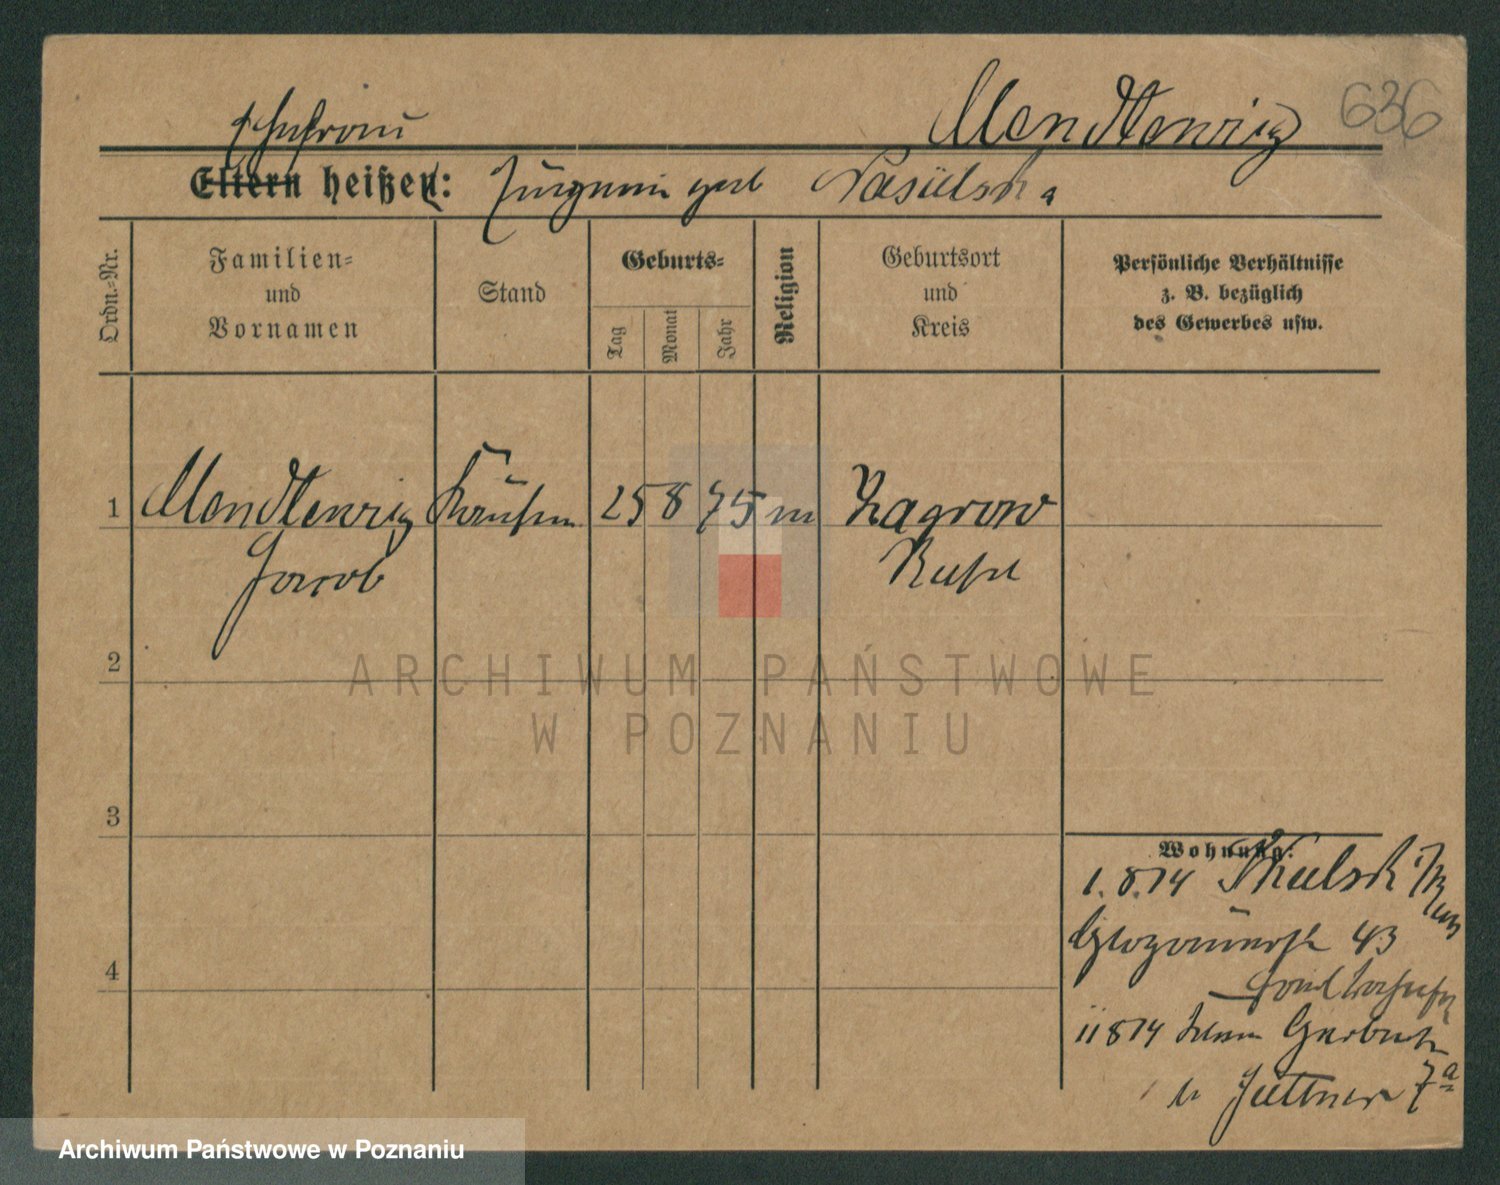 Ehefrau Mendlewicz 636
Eltern heißen: geb
Ordn.-Nr.
Familien-
und
Vornamen
Stand
Geburts-
Tag Monat Jahr
Religion
Geburtsort
und
Kreis
Persönliche Verhältnisse
z. B. bezüglich
des Gewerbes usw.
1 Mendlewicz Kaufm 25 8 75 m Zagrow
Jacob Rußl
2
ARCHIWUM PAŃSTWOWE
W POZNANIU
3
Wohnung:
1.8.14
43
4
11 8 14 Gerberstr
b. Jüttner 7a
Archiwum Państwowe w Poznaniu